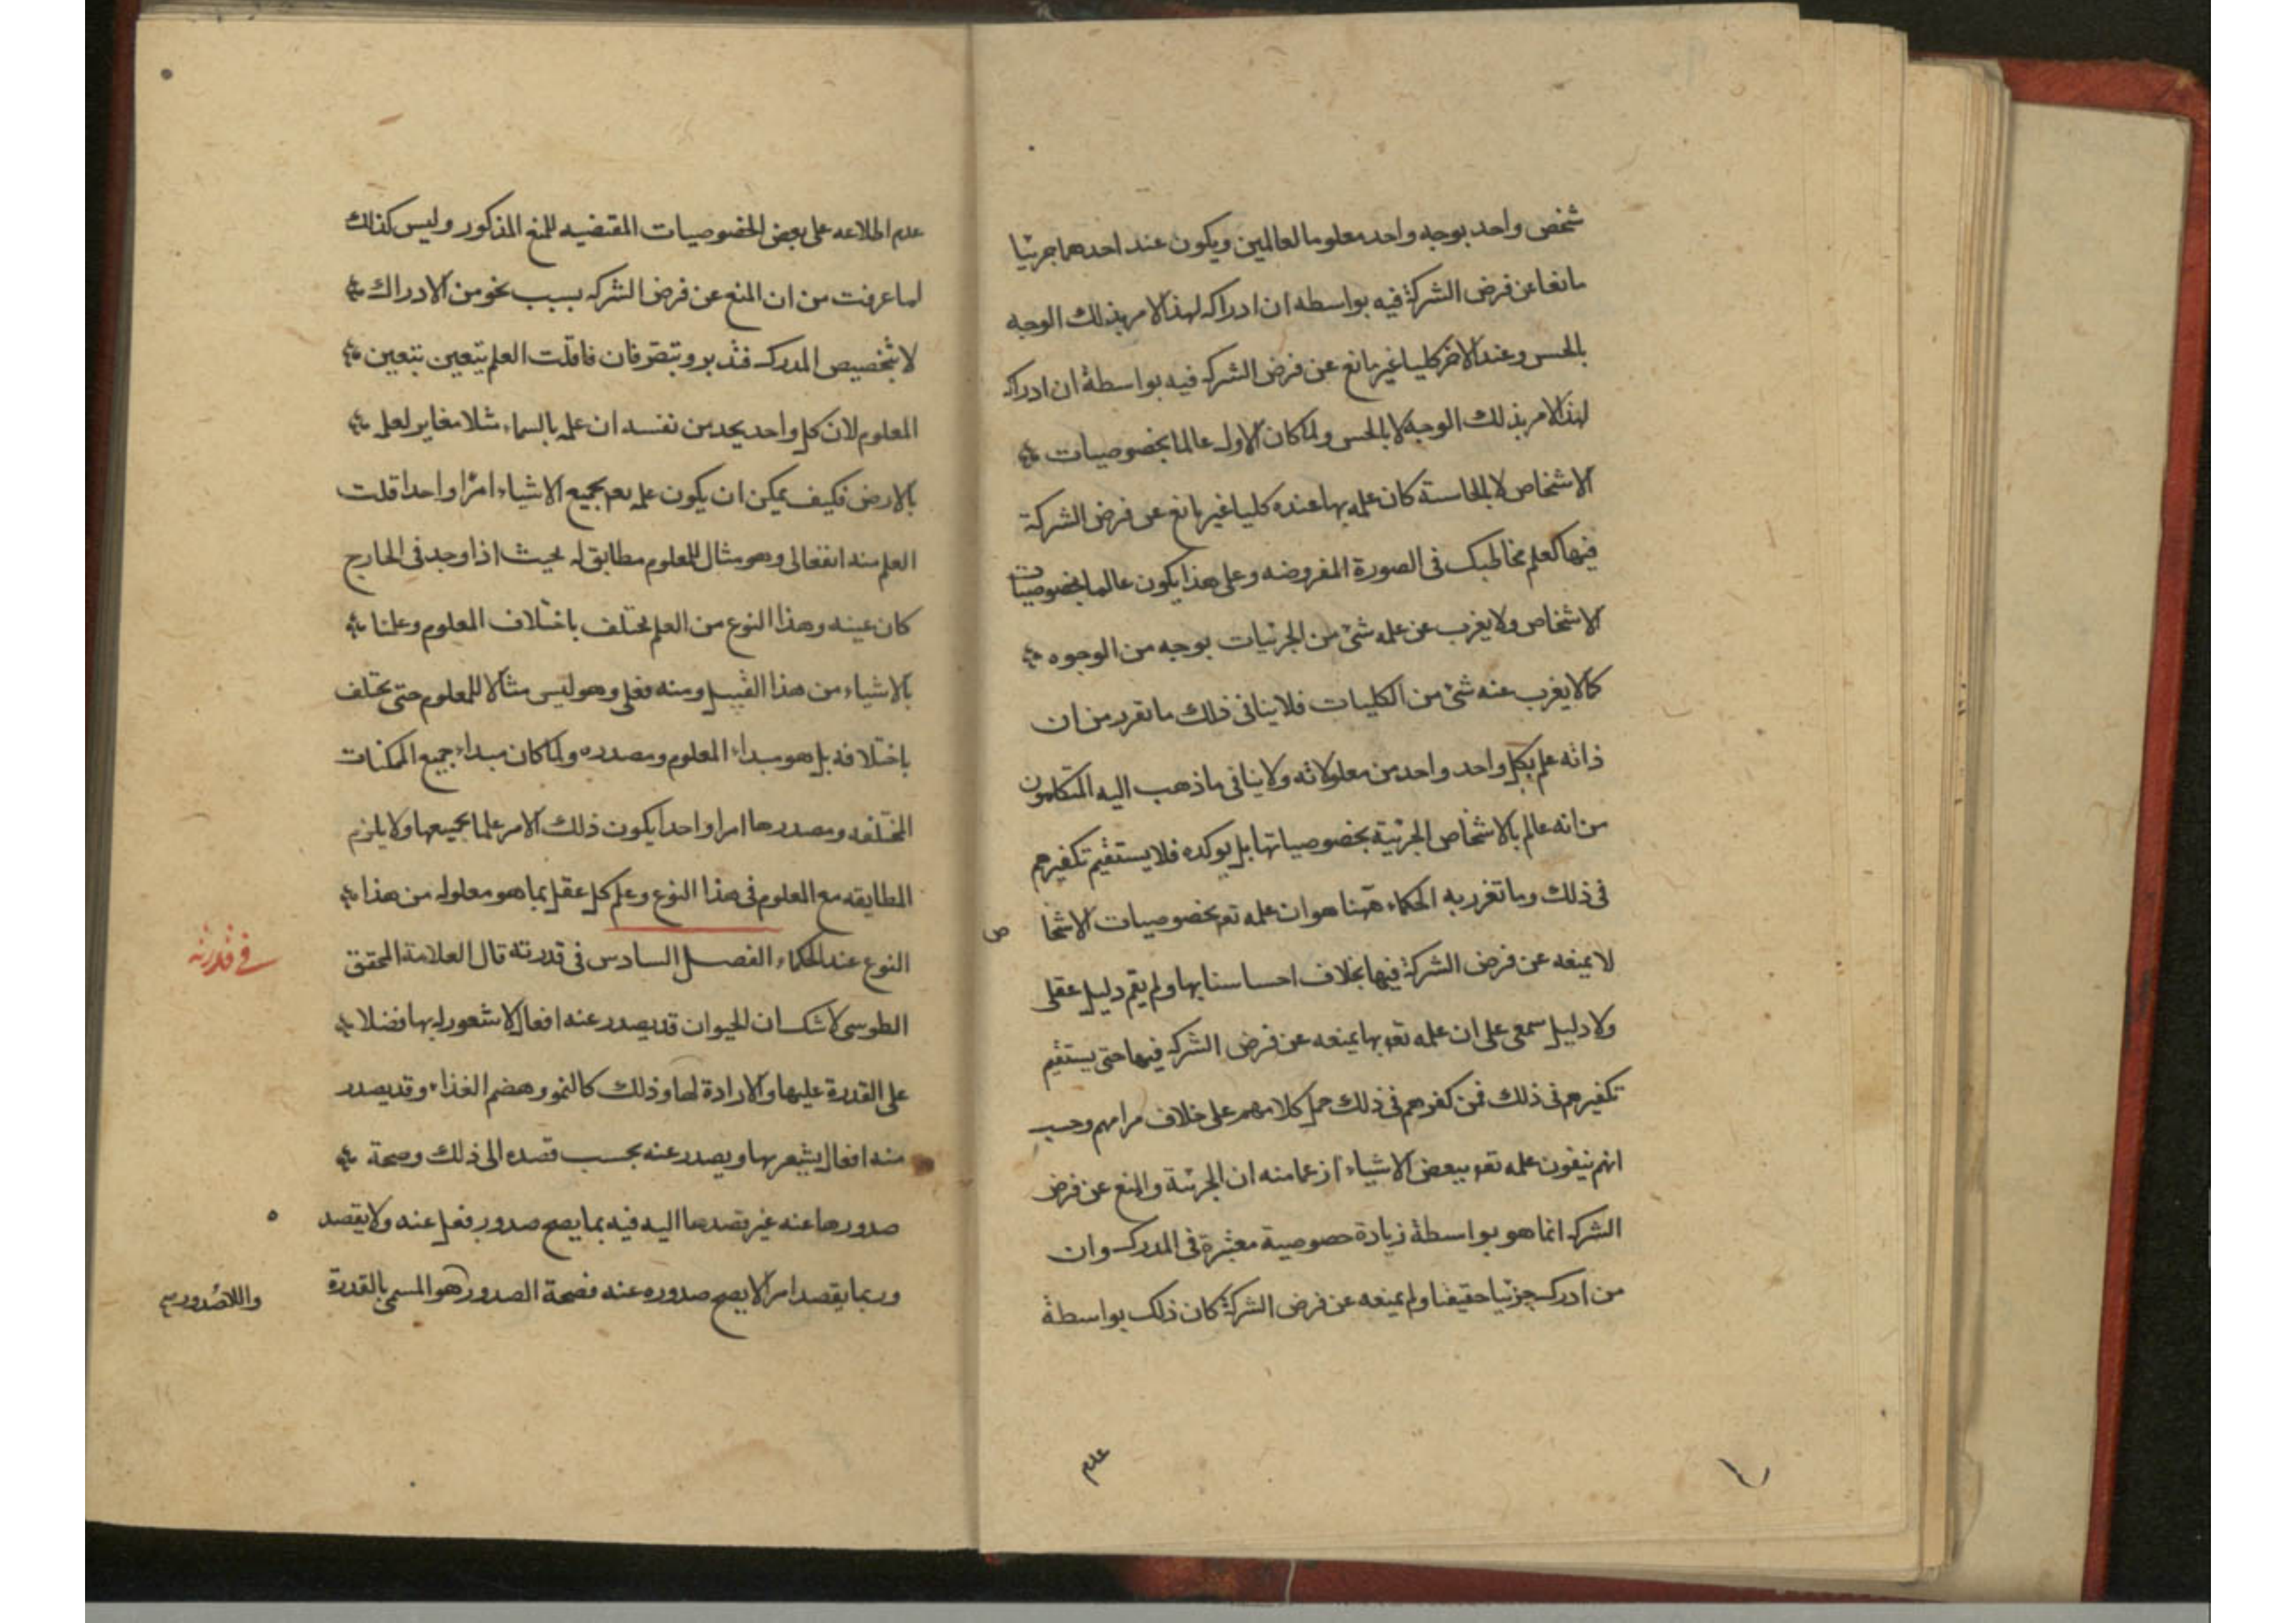 شخص واحد بوجه واحد معلوما لعالمين ويكون عند احدهما جزئيا
مانعا عن فرض الشركة فيه بواسطه ان ادراكه لهذا الامر بذلك الوجه
بالحس وعند الاخر كليا غير مانع عن فرض الشركه فيه بواسطة ان ادراكه
لهذا الامر بذلك الوجه لا بالحس ولما كان الاول عالما بخصوصيات
الاشخاص لا بالحاسة كان علمه بها عنده كليا غير مانع عن فرض الشركة
فيها كعلم مخاطبك فى الصورة المفروضه وعلى هذا يكون عالما بخصوصيات
الاشخاص ولا يغرب عن علمه شئ من الجزئيات بوجه من الوجوه
كما لا يغرب عنه شئ من الكليات فلا ينافى ذلك ما تقرر من ان
ذاته علم بكل واحد واحد من معلولاته ولا ينافى ما ذهب اليه المتكلمون
من انه عالم بالاشخاص الجزئية بخصوصياتها بل يوكده فلا يستقيم تكفيرهم
فى ذلك وما تغرر به الحكماء ههنا هو ان علمه تعه بخصوصيات الاشخا ص
لا يمنعه عن فرض الشركة فيها بخلاف احساسنا بها ولم يقم دليل عقلى
ولا دليل سمعى على ان علمه تعه بها يمنعه عن فرض الشركه فيها حتى يستقيم
تكفيرهم فى ذلك فمن كفرهم فى ذلك حمل كلامهم على خلاف مرامهم وحسب
انهم ينفون علمه تعه ببعض الاشياء زعما منه ان الجزئية والمنع عن فرض
الشركه انما هو بواسطة زيادة خصوصية معتبرة فى المدرك وان
من ادرك جزئيا حقيقيا ولم يمنعه عن فرض الشركة كان ذلك بواسطة
عدم
عدم اطلاعه على بعض الخصوصيات المقتضيه للمنع المذكور وليس كذلك
لما عرفت من ان المنع عن فرض الشركه بسبب نحو من الادراك
لا بتخصيص المدرك فتدبر وتبصر فان قلت العلم يتعين بتعين
المعلوم لان كل واحد يجد من نفسه ان علمه بالسماء مثلا مغاير لعلمه
بالارض فكيف يمكن ان يكون علمه تعه بجميع الاشياء امرا واحدا قلت
العلم منه انفعالى وهو مثال للمعلوم مطابق له بحيث اذا وجد فى الخارج
كان عينه وهذا النوع من العلم يختلف باختلاف المعلوم وعلمنا
بالاشياء من هذا القبيل ومنه فعلى وهو ليس مثالا للمعلوم حتى يختلف
باختلافه بل هو مبداء المعلوم ومصدره ولما كان مبداء جميع الممكنات
المختلفه ومصدرها امرا واحدا يكون ذلك الامر علما بجميعها ولا يلزم
المطابقه مع المعلوم فى هذا النوع وعلم كل عقل بما هو معلوله من هذا
النوع عند الحكماء الفصل السادس فى قدرته قال العلامة المحقق
فى قدرته
الطوسى لا شك ان الحيوان قد يصدر عنه افعال لا شعور له بها فضلا
على القدرة عليها والارادة لها وذلك كالنمو وهضم الغذاء وقد يصدر
منه افعال يشعر بها ويصدر عنه بحسب قصده الى ذلك وصحة
صدورها عنه غير قصدها اليه فيه بما يصح صدور فعل عنه ولا يقصد
وربما يقصد امرا لا يصح صدوره عنه فصحة الصدور هو المسمى بالقدرة
واللاصدور